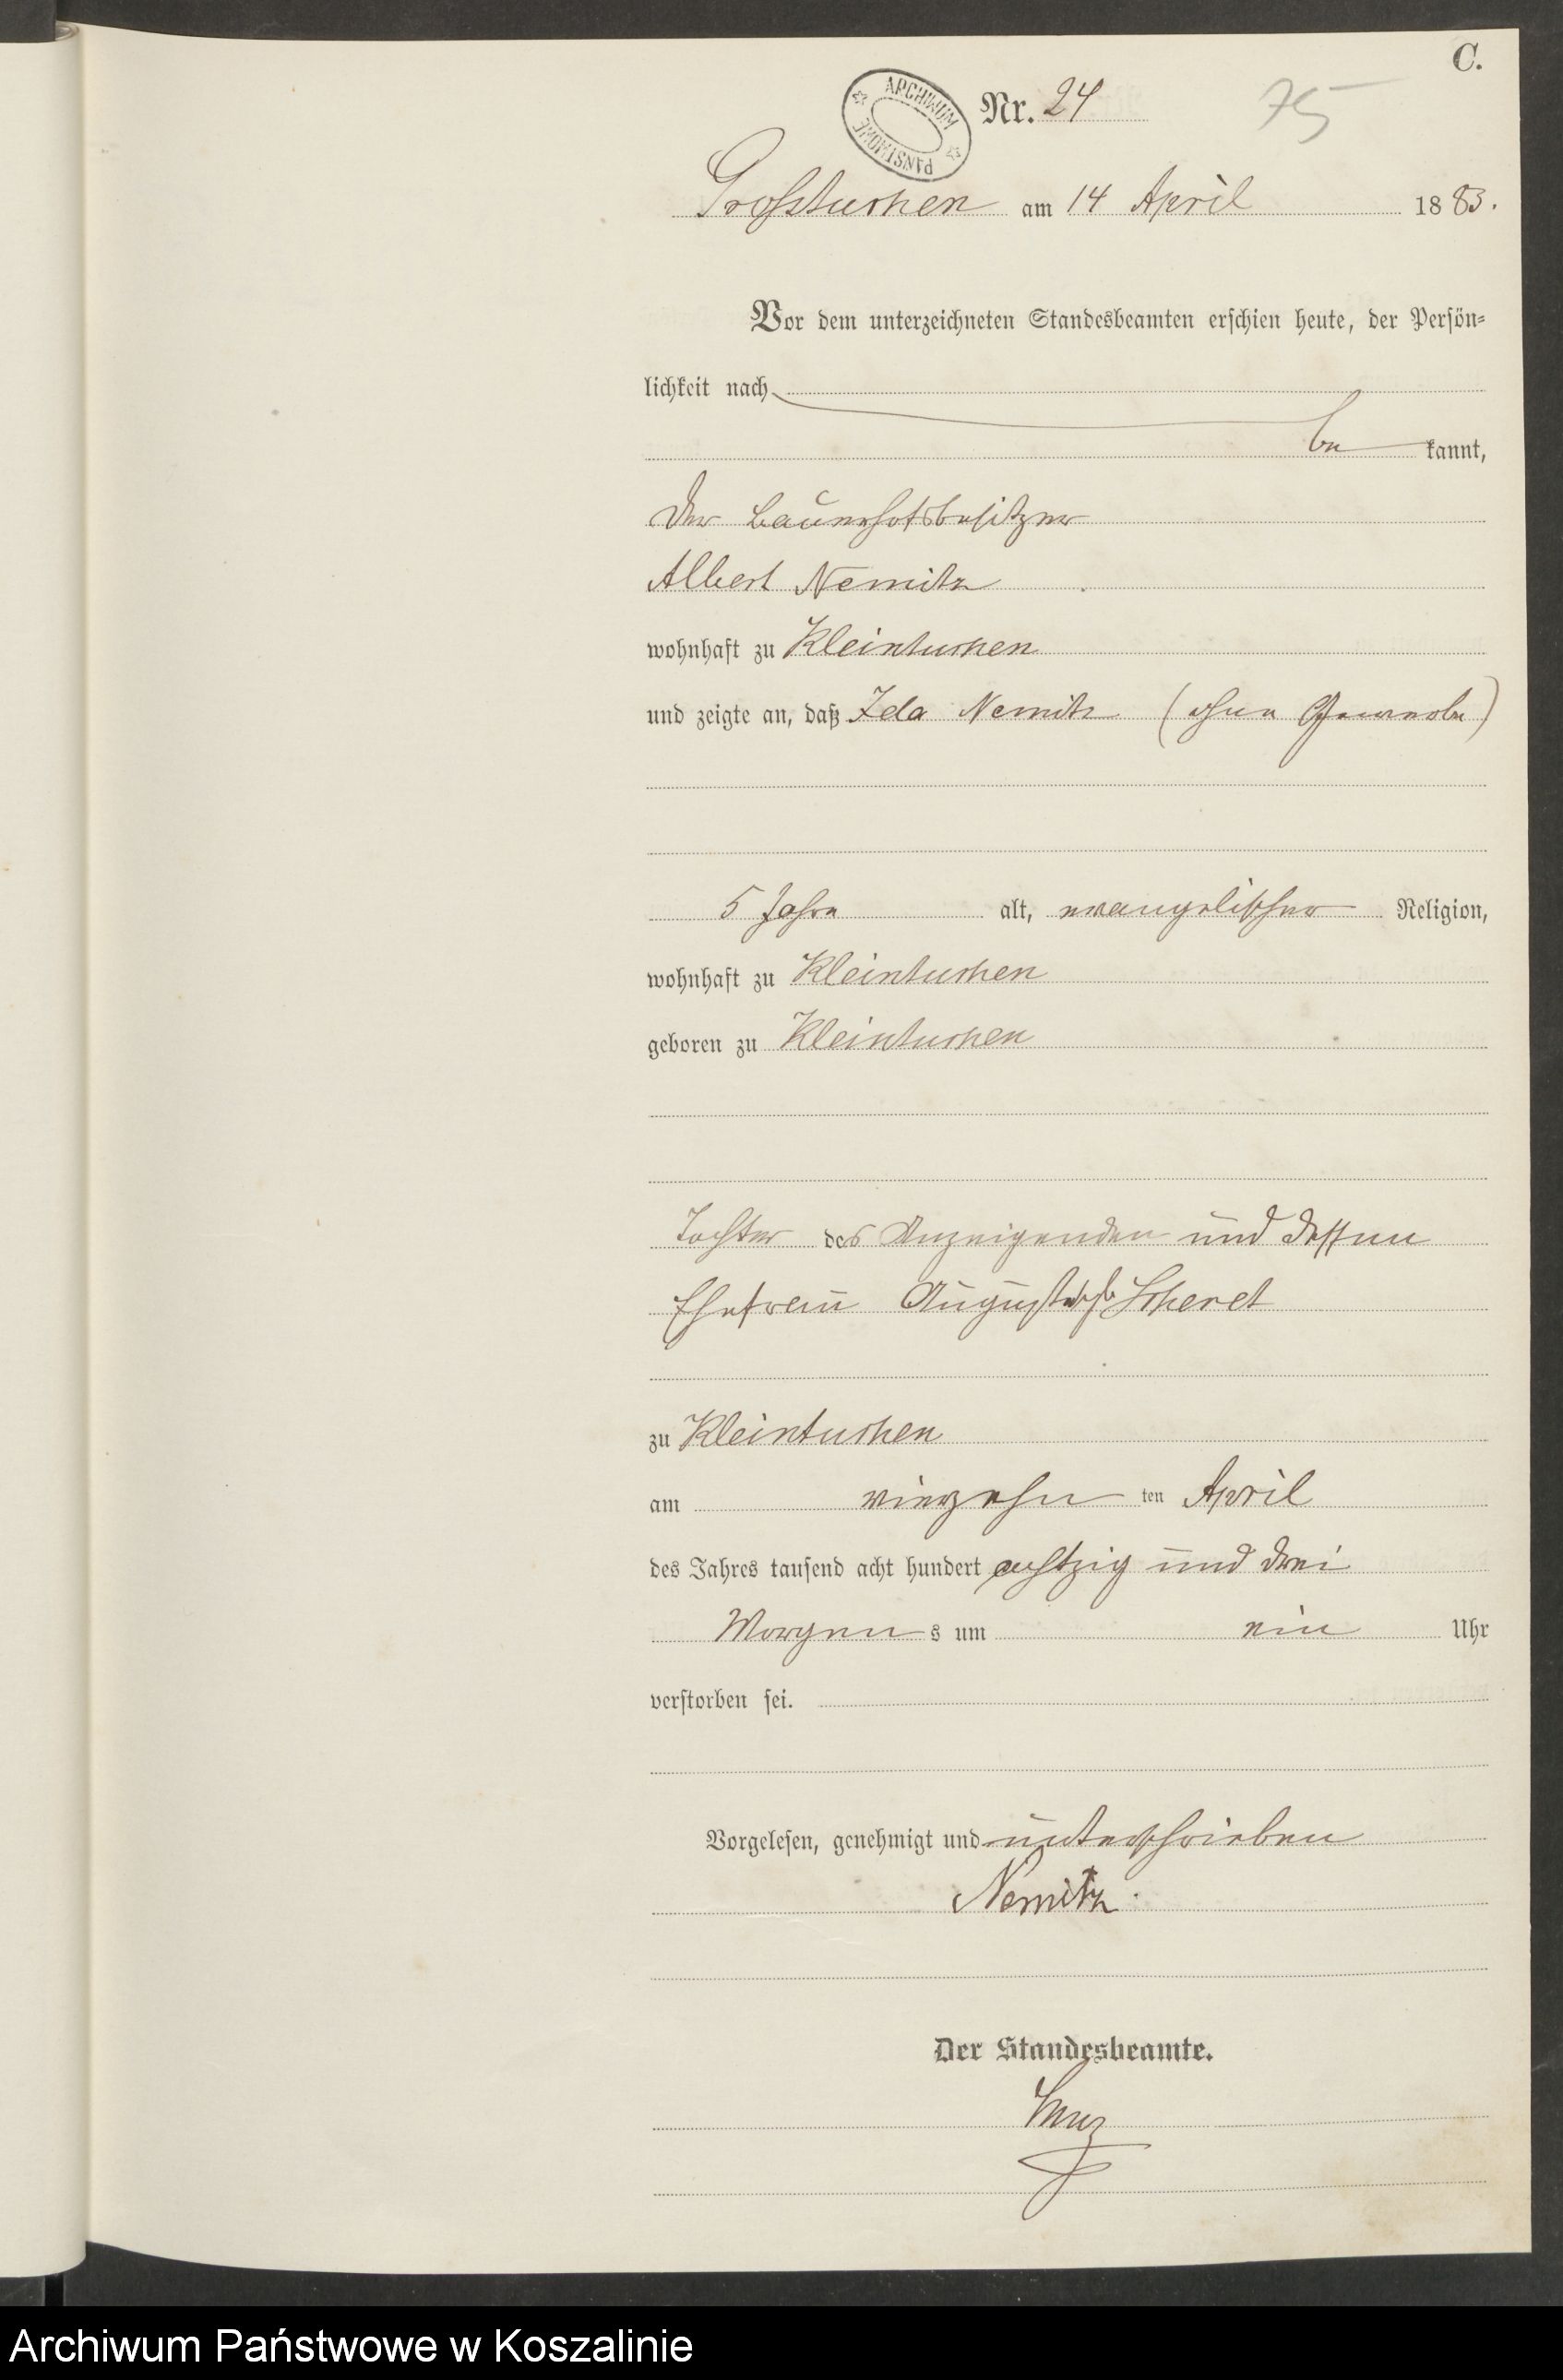 C.
ARCHIWUM PAŃSTWOWE
Nr. 24
75
Grosstuchen am 14 April 1883.
Vor dem unterzeichneten Standesbeamten erschien heute, der Persön-
lichkeit nach
be kannt,
der Bauerhofsbesitzer
Albert Nemitz
wohnhaft zu Kleintuchen
und zeigte an, daß Ida Nemitz (ohne Gewerbe)
5 Jahre alt, evangelischer Religion,
wohnhaft zu Kleintuchen
geboren zu Kleintuchen
Tochter des Anzeigenden und dessen
Ehefrau Auguste
zu Kleintuchen
am vierzehn ten April
des Jahres tausend acht hundert achtzig und drei
Morgen s um ein Uhr
verstorben sei.
Vorgelesen, genehmigt und unterschrieben
Nemitz.
Der Standesbeamte.
Archiwum Państwowe w Koszalinie